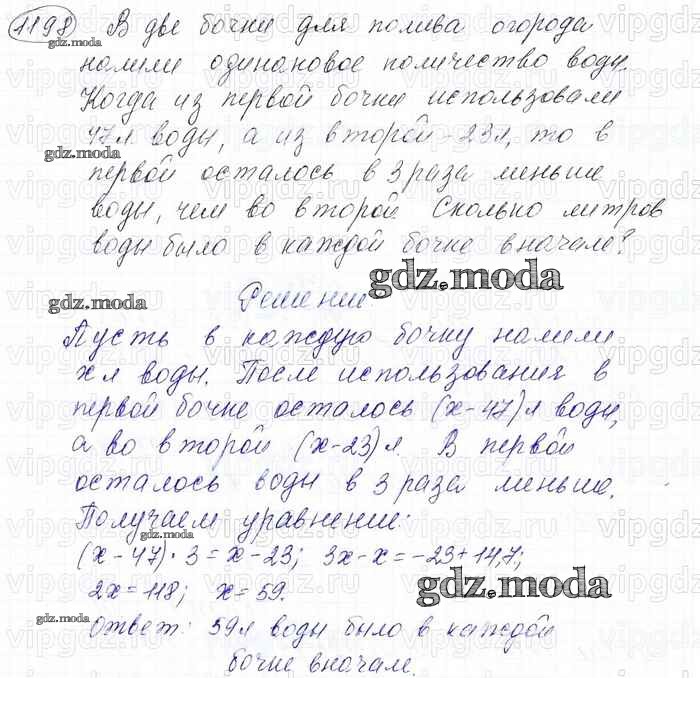 1198 В две бочки для полива огорода
налили одинаковое количество воды.
Когда из первой бочки использовали
47 л воды, а из второй - 23 л, то в
первой осталось в 3 раза меньше
воды, чем во второй. Сколько литров
воды было в каждой бочке вначале?
Решение.
Пусть в каждую бочку налили
x л воды. После использования в
первой бочке осталось (x-47) л воды,
а во второй (x-23) л. В первой
осталось воды в 3 раза меньше.
Получаем уравнение:
(x-47)·3 = x-23; 3x-x = -23+147;
2x = 118; x = 59.
Ответ: 59 л воды было в каждой
бочке вначале.
gdz.moda
gdz.moda
gdz.moda
gdz.moda
gdz.moda
gdz.moda
gdz.moda
gdz.moda